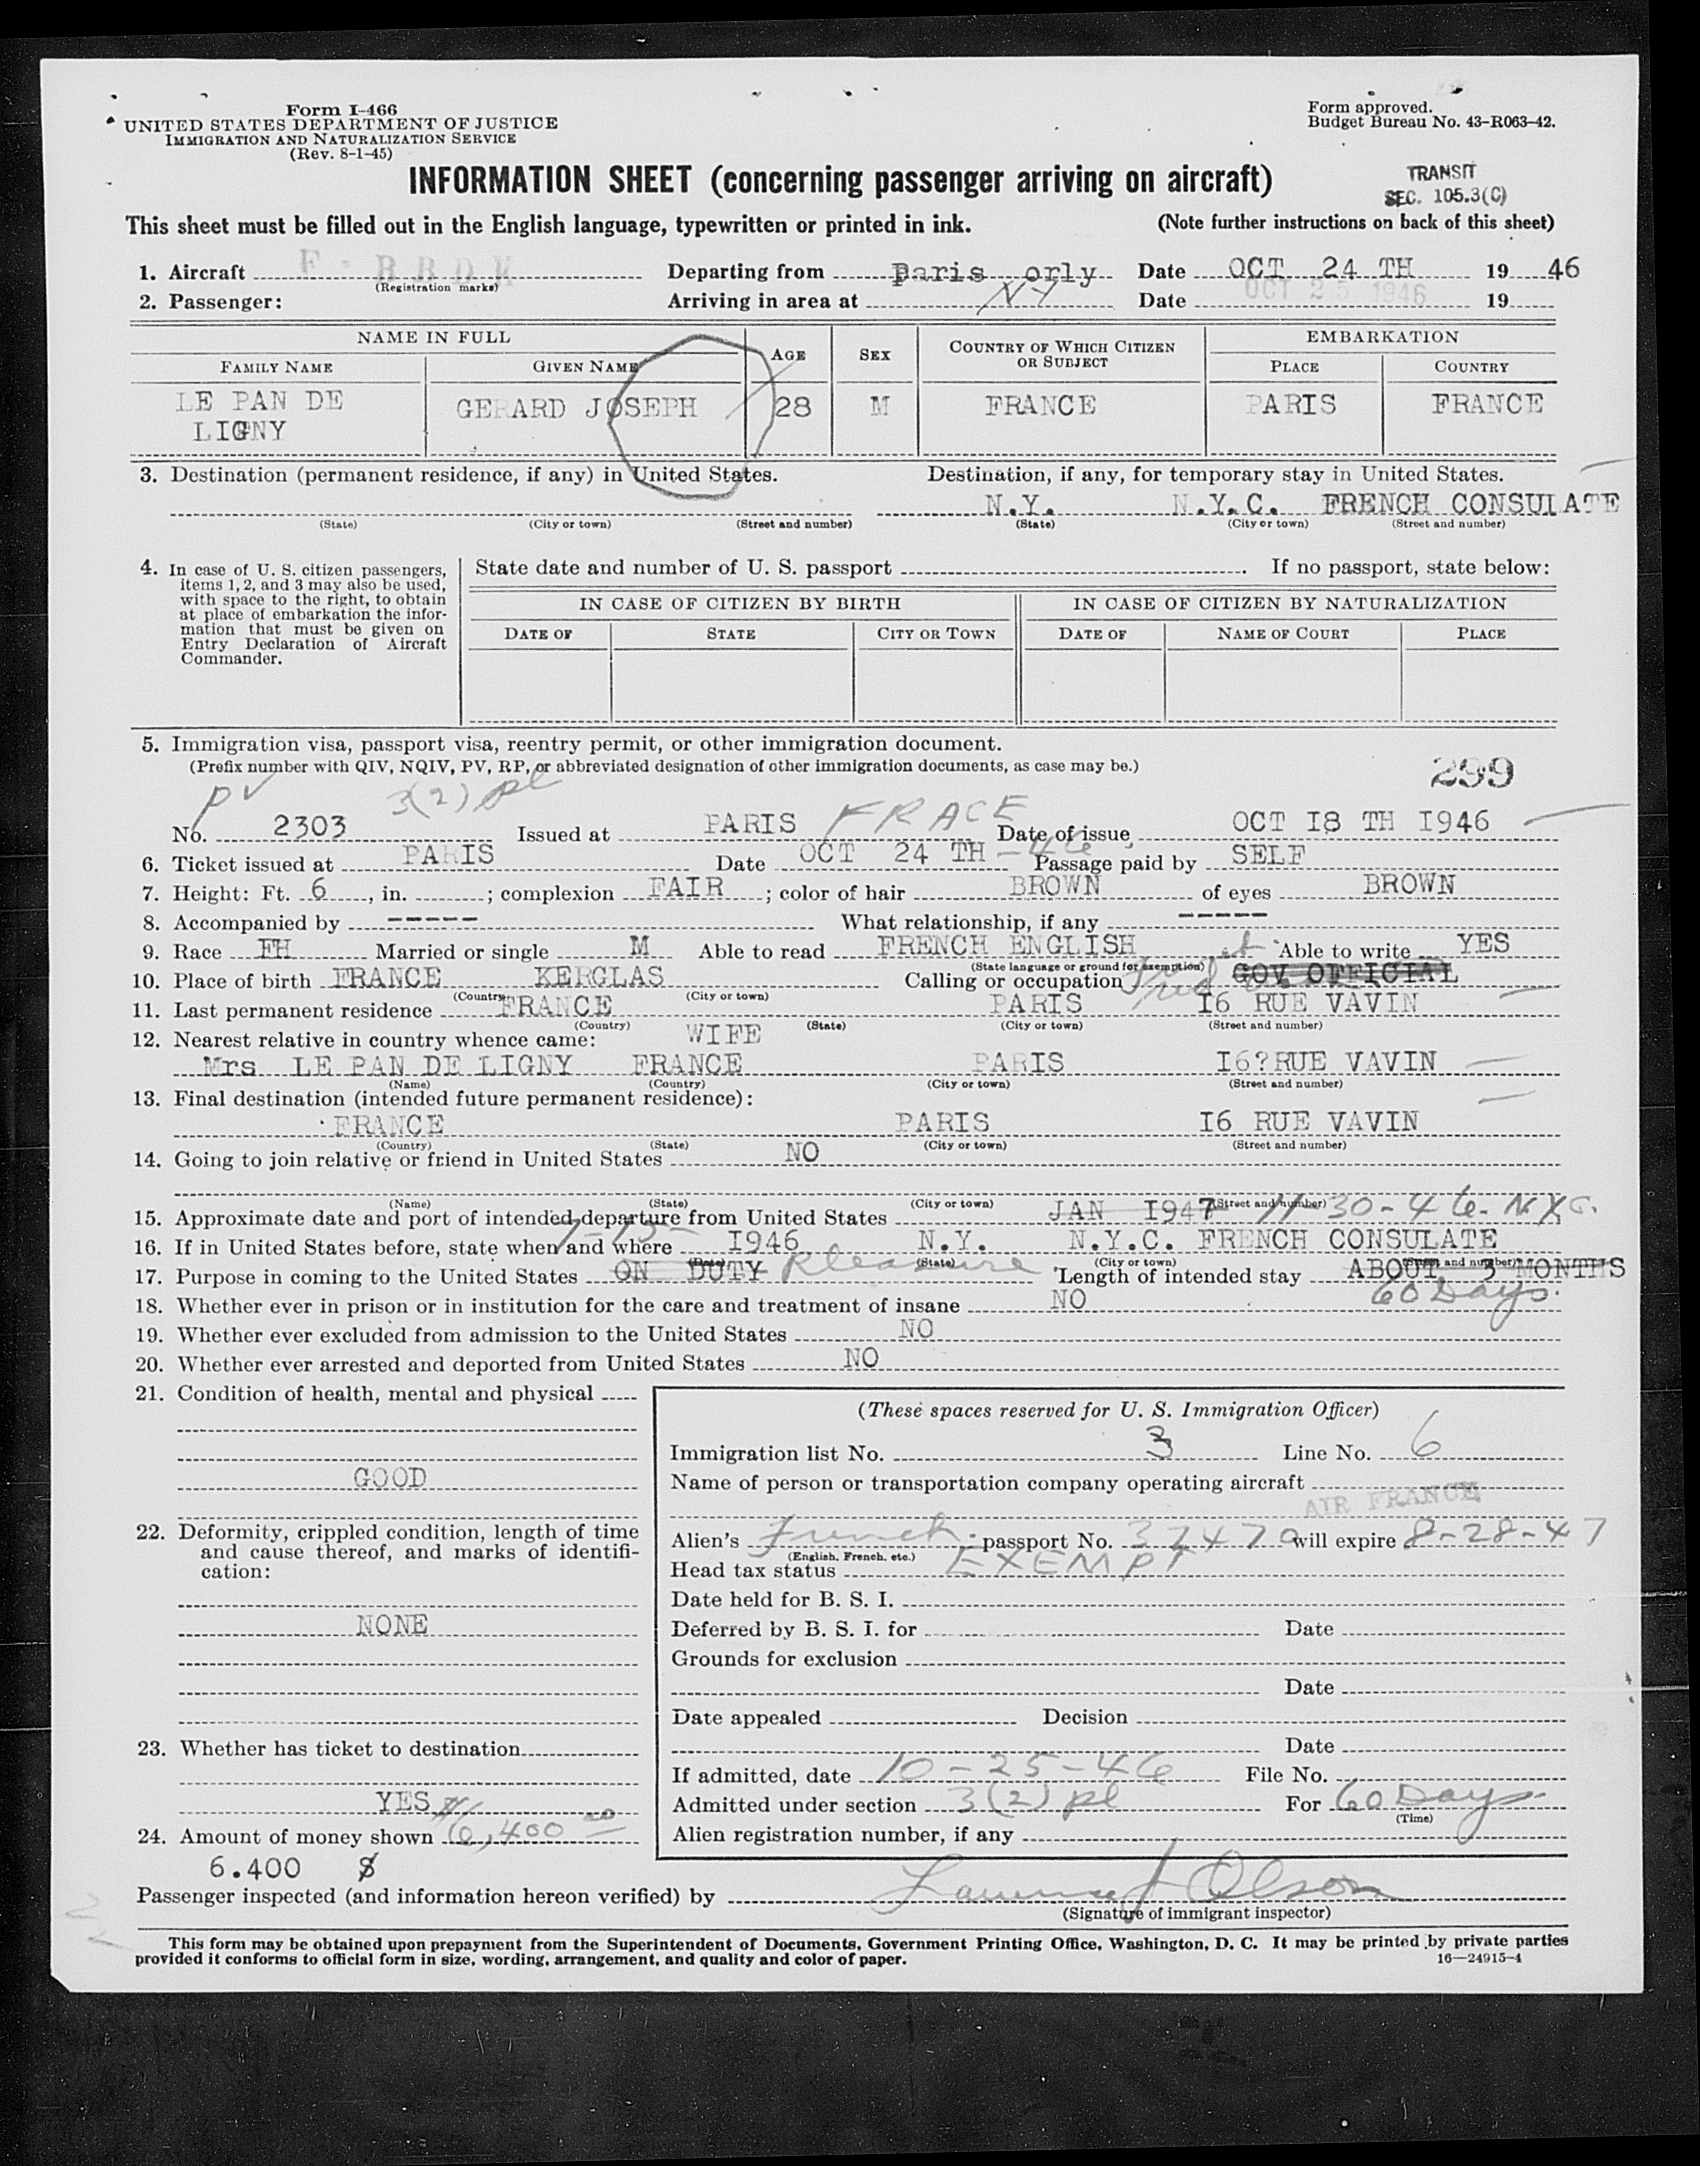 Form I-466
UNITED STATES DEPARTMENT OF JUSTICE
IMMIGRATION AND NATURALIZATION SERVICE
(Rev. 8-1-45)
Form approved.
Budget Bureau No. 43-R063-42.
INFORMATION SHEET (concerning passenger arriving on aircraft)
TRANSIT
SEC. 105.3(C)
This sheet must be filled out in the English language, typewritten or printed in ink.
(Note further instructions on back of this sheet)
1. Aircraft (Registration marks) Departing from Paris orly Date OCT 24 TH 19 46
2. Passenger: Arriving in area at NY Date OCT 25 1946 19
NAME IN FULL AGE SEX COUNTRY OF WHICH CITIZEN OR SUBJECT EMBARKATION
FAMILY NAME GIVEN NAME PLACE COUNTRY
LE PAN DE LIGNY GERARD JOSEPH 28 M FRANCE PARIS FRANCE
3. Destination (permanent residence, if any) in United States. Destination, if any, for temporary stay in United States.
N.Y. N.Y.C. FRENCH CONSULATE
(State) (City or town) (Street and number) (State) (City or town) (Street and number)
4. In case of U. S. citizen passengers, items 1, 2, and 3 may also be used, with space to the right, to obtain at place of embarkation the information that must be given on Entry Declaration of Aircraft Commander.
State date and number of U. S. passport . If no passport, state below:
IN CASE OF CITIZEN BY BIRTH IN CASE OF CITIZEN BY NATURALIZATION
DATE OF STATE CITY OR TOWN DATE OF NAME OF COURT PLACE
5. Immigration visa, passport visa, reentry permit, or other immigration document.
(Prefix number with QIV, NQIV, PV, RP, or abbreviated designation of other immigration documents, as case may be.)
299
PV 3(2) pl
No. 2303 Issued at PARIS FRACE Date of issue OCT I8 TH I946
6. Ticket issued at PARIS Date OCT 24 TH -46 Passage paid by SELF
7. Height: Ft. 6, in. ; complexion FAIR; color of hair BROWN of eyes BROWN
8. Accompanied by ----- What relationship, if any -----
9. Race FH Married or single M Able to read FRENCH ENGLISH Able to write YES
(State language or ground for exemption)
10. Place of birth FRANCE KERGLAS Calling or occupation GOV OFFICIAL
(Country) (City or town)
11. Last permanent residence FRANCE PARIS I6 RUE VAVIN
(Country) (State) (City or town) (Street and number)
12. Nearest relative in country whence came: WIFE
Mrs LE PAN DE LIGNY FRANCE PARIS I6?RUE VAVIN
(Name) (Country) (City or town) (Street and number)
13. Final destination (intended future permanent residence):
FRANCE PARIS I6 RUE VAVIN
(Country) (State) (City or town) (Street and number)
14. Going to join relative or friend in United States NO
(Name) (State) (City or town) (Street and number)
15. Approximate date and port of intended departure from United States JAN I947 11-30-46- N.Y.C.
16. If in United States before, state when and where 7-15- I946 N.Y. N.Y.C. FRENCH CONSULATE
(Date) (State) (City or town) (Street and number)
17. Purpose in coming to the United States ON DUTY Pleasure Length of intended stay ABOUT 3 MONTHS
60 Days.
18. Whether ever in prison or in institution for the care and treatment of insane NO
19. Whether ever excluded from admission to the United States NO
20. Whether ever arrested and deported from United States NO
21. Condition of health, mental and physical
GOOD
22. Deformity, crippled condition, length of time and cause thereof, and marks of identification:
NONE
23. Whether has ticket to destination
YES
24. Amount of money shown $6,400 00
6.400 $
(These spaces reserved for U. S. Immigration Officer)
Immigration list No. 3 Line No. 6
Name of person or transportation company operating aircraft
AIR FRANCE
Alien's French passport No. 37470 will expire 8-28-47
(English, French, etc.)
Head tax status EXEMPT
Date held for B. S. I.
Deferred by B. S. I. for Date
Grounds for exclusion
Date
Date appealed Decision
Date
If admitted, date 10-25-46 File No.
Admitted under section 3(2) pl For 60 Days
(Time)
Alien registration number, if any
Passenger inspected (and information hereon verified) by Lawrence J Olson
(Signature of immigrant inspector)
This form may be obtained upon prepayment from the Superintendent of Documents, Government Printing Office, Washington, D. C. It may be printed by private parties
provided it conforms to official form in size, wording, arrangement, and quality and color of paper.
16—24915-4